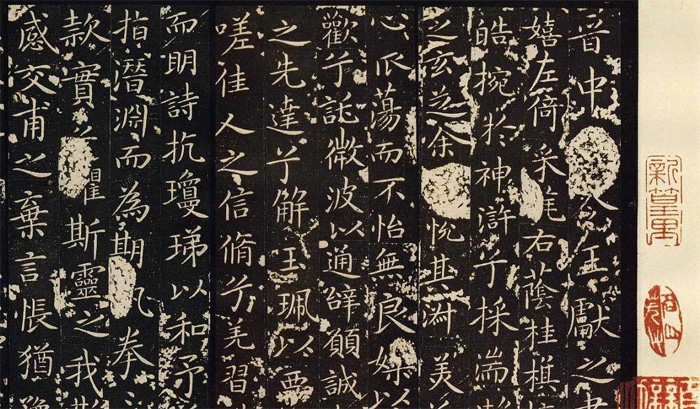 晉中令王獻之書
嬉左倚采旄右蔭桂旗
皓捥於神滸兮採湍
之玄芝余悅其淑美
心振蕩而不怡無良媒以
歡兮託微波以通辝願誠
之先達兮解玉珮以要
嗟佳人之信脩兮羌習
而明詩抗瓊珶以和予
指潛淵而為期執拳
款實懼斯靈之我
感交甫之棄言悵猶